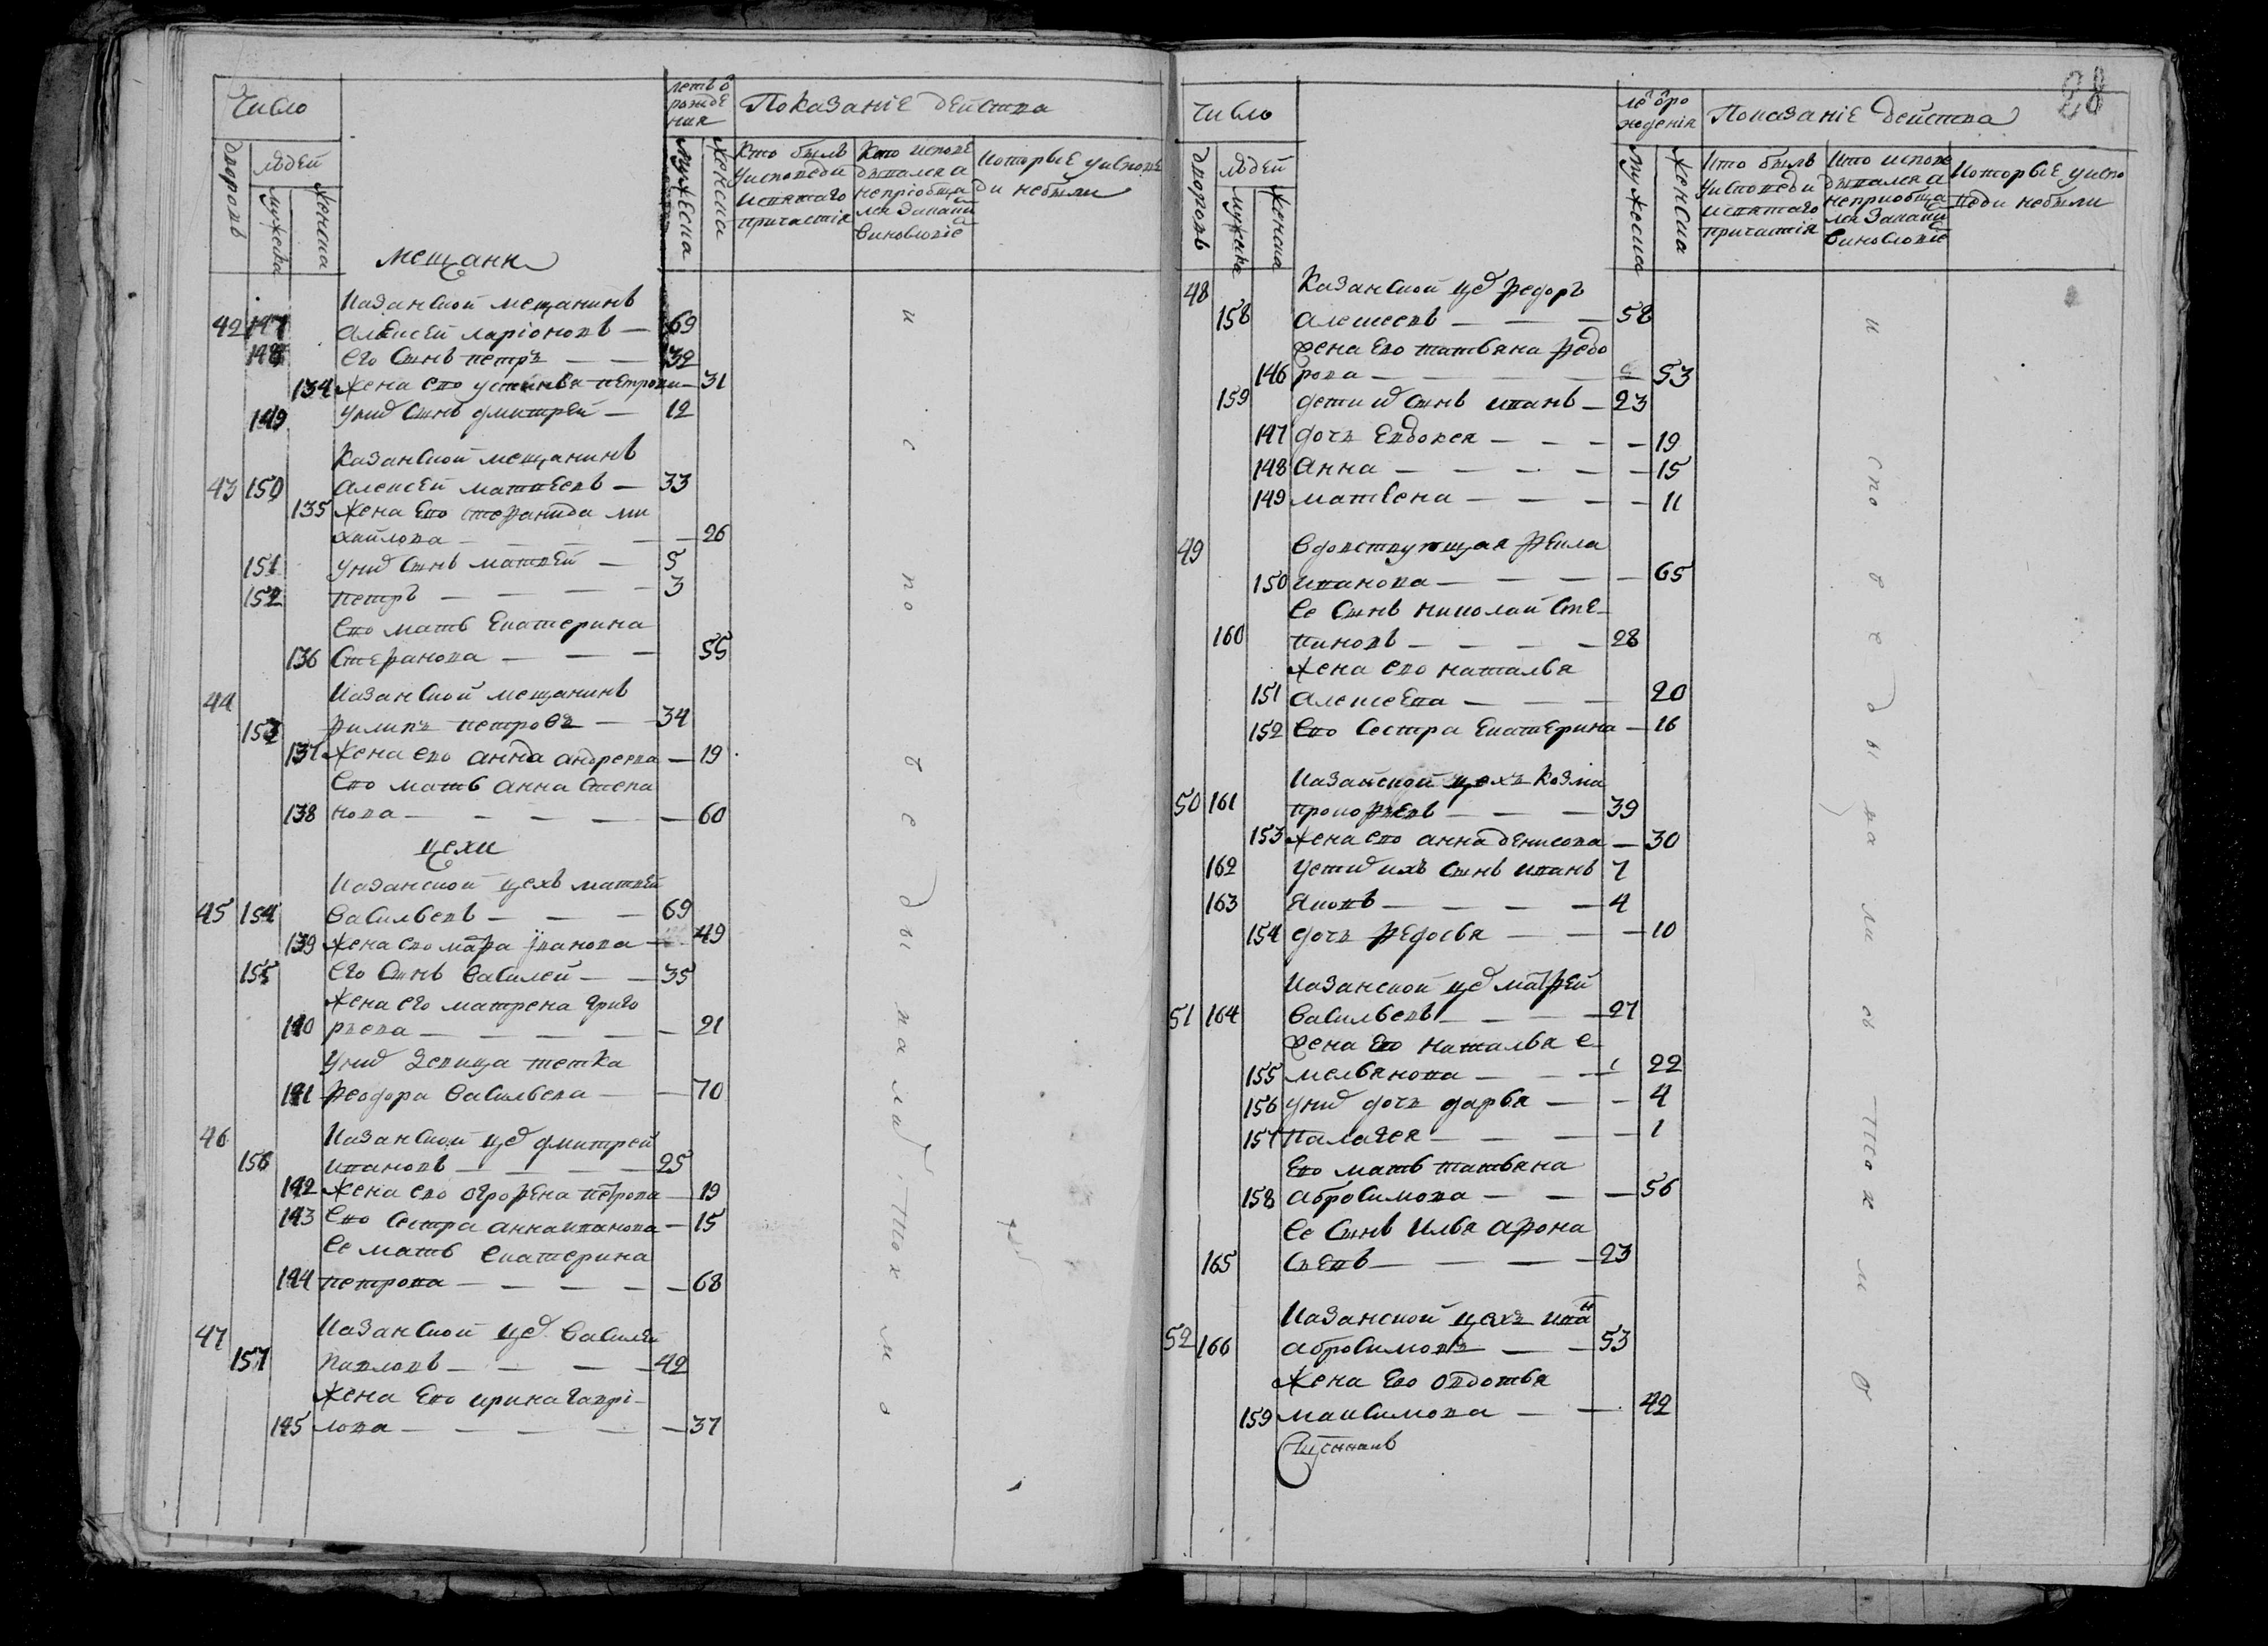 Число
летъ ѿ рождения
Показаніе действа
дворовъ
людей
мужеска
женска
мужеска
женска
Кто былъ у исповеди и святаго причастія
Кто исповедывался а непріобщался за какимъ виновловіе
Которые у исповеди небыли
мещане
Казанской мещанинъ
42 147 Алексей Ларіоновъ — 69
148 его сынъ петръ — — 32
134 жена ево устинья петрова — 31
149 у них сынъ дмитрей — 12
Казанской мещанинъ
43 150 Алексей матвеевъ — 33
135 жена ево стефанида ми
хайлова — — — 26
151 у них сынъ матвей — 5
152 петръ — — — — 3
ево мать екатерина
136 Стефанова — — — 55
44 Казанской мещанинъ
153 филипъ петровъ — — 34
137 жена ево анна андреева — 19
ево мать анна степа
138 нова — — — — — 60
цехи
Казанской цехъ матвей
45 154 васильевъ — — — 69
139 жена ево марфа іванова — 49
155 его сынъ василей — — 35
жена его матрена григо
140 рьева — — — — — 21
у них девица тетка
141 феодора васильева — — 70
46 Казанской цех дмитрей
156 ивановъ — — — — 25
142 жена ево огрофена петрова — 19
143 ево сестра анна иванова — 15
ее мать екатерина
144 петрова — — — — — 68
47 Казанской цех василей
157 павловъ — — — — 42
жена ево ирина гаврі-
145 лова — — — — — 37
исповеди ка лись токмо
88
Число
ле ѿ ро
жденія
Показаніе действа
дворовъ
людей
мужеска
женска
мужеска
женска
Кто былъ у исповеди и святаго причастія
Кто исповедывался а неприобщался за какимъ виновловіе
Которые у исповеди небыли
48 Казанской цех федоръ
158 алексеевъ — — — 58
жена ево татьяна федо
146 рова — — — — 53
159 дети их сынъ иванъ — 23
147 дочь евдокея — — — — 19
148 Анна — — — — — 15
149 матвена — — — — 11
49 вдовствующая фекла
150 иванова — — — — 65
ее сынъ николай сте-
160 пановъ — — — — 28
жена ево наталья
151 алексеева — — — 20
152 ево сестра екатерина — 16
Казанской цехъ козма
50 161 прокофьевъ — — — 39
153 жена ево анна денисова — 30
162 у етих ихъ сынъ иванъ 7
163 яковъ — — — — 4
154 дочь федосья — — — 10
Казанской цех матфей
51 164 васильевъ — — — 27
жена ево наталья е-
155 мельянова — — — 22
156 у них дочь дарья — — 4
157 палагея — — — — 1
ево мать татьяна
158 абросимова — — — 56
ее сынъ илья афона
165 сьевъ — — — — 23
Казанской цехъ иван
52 166 абросимовъ — — 53
жена ево овдотья
159 максимова — — 42